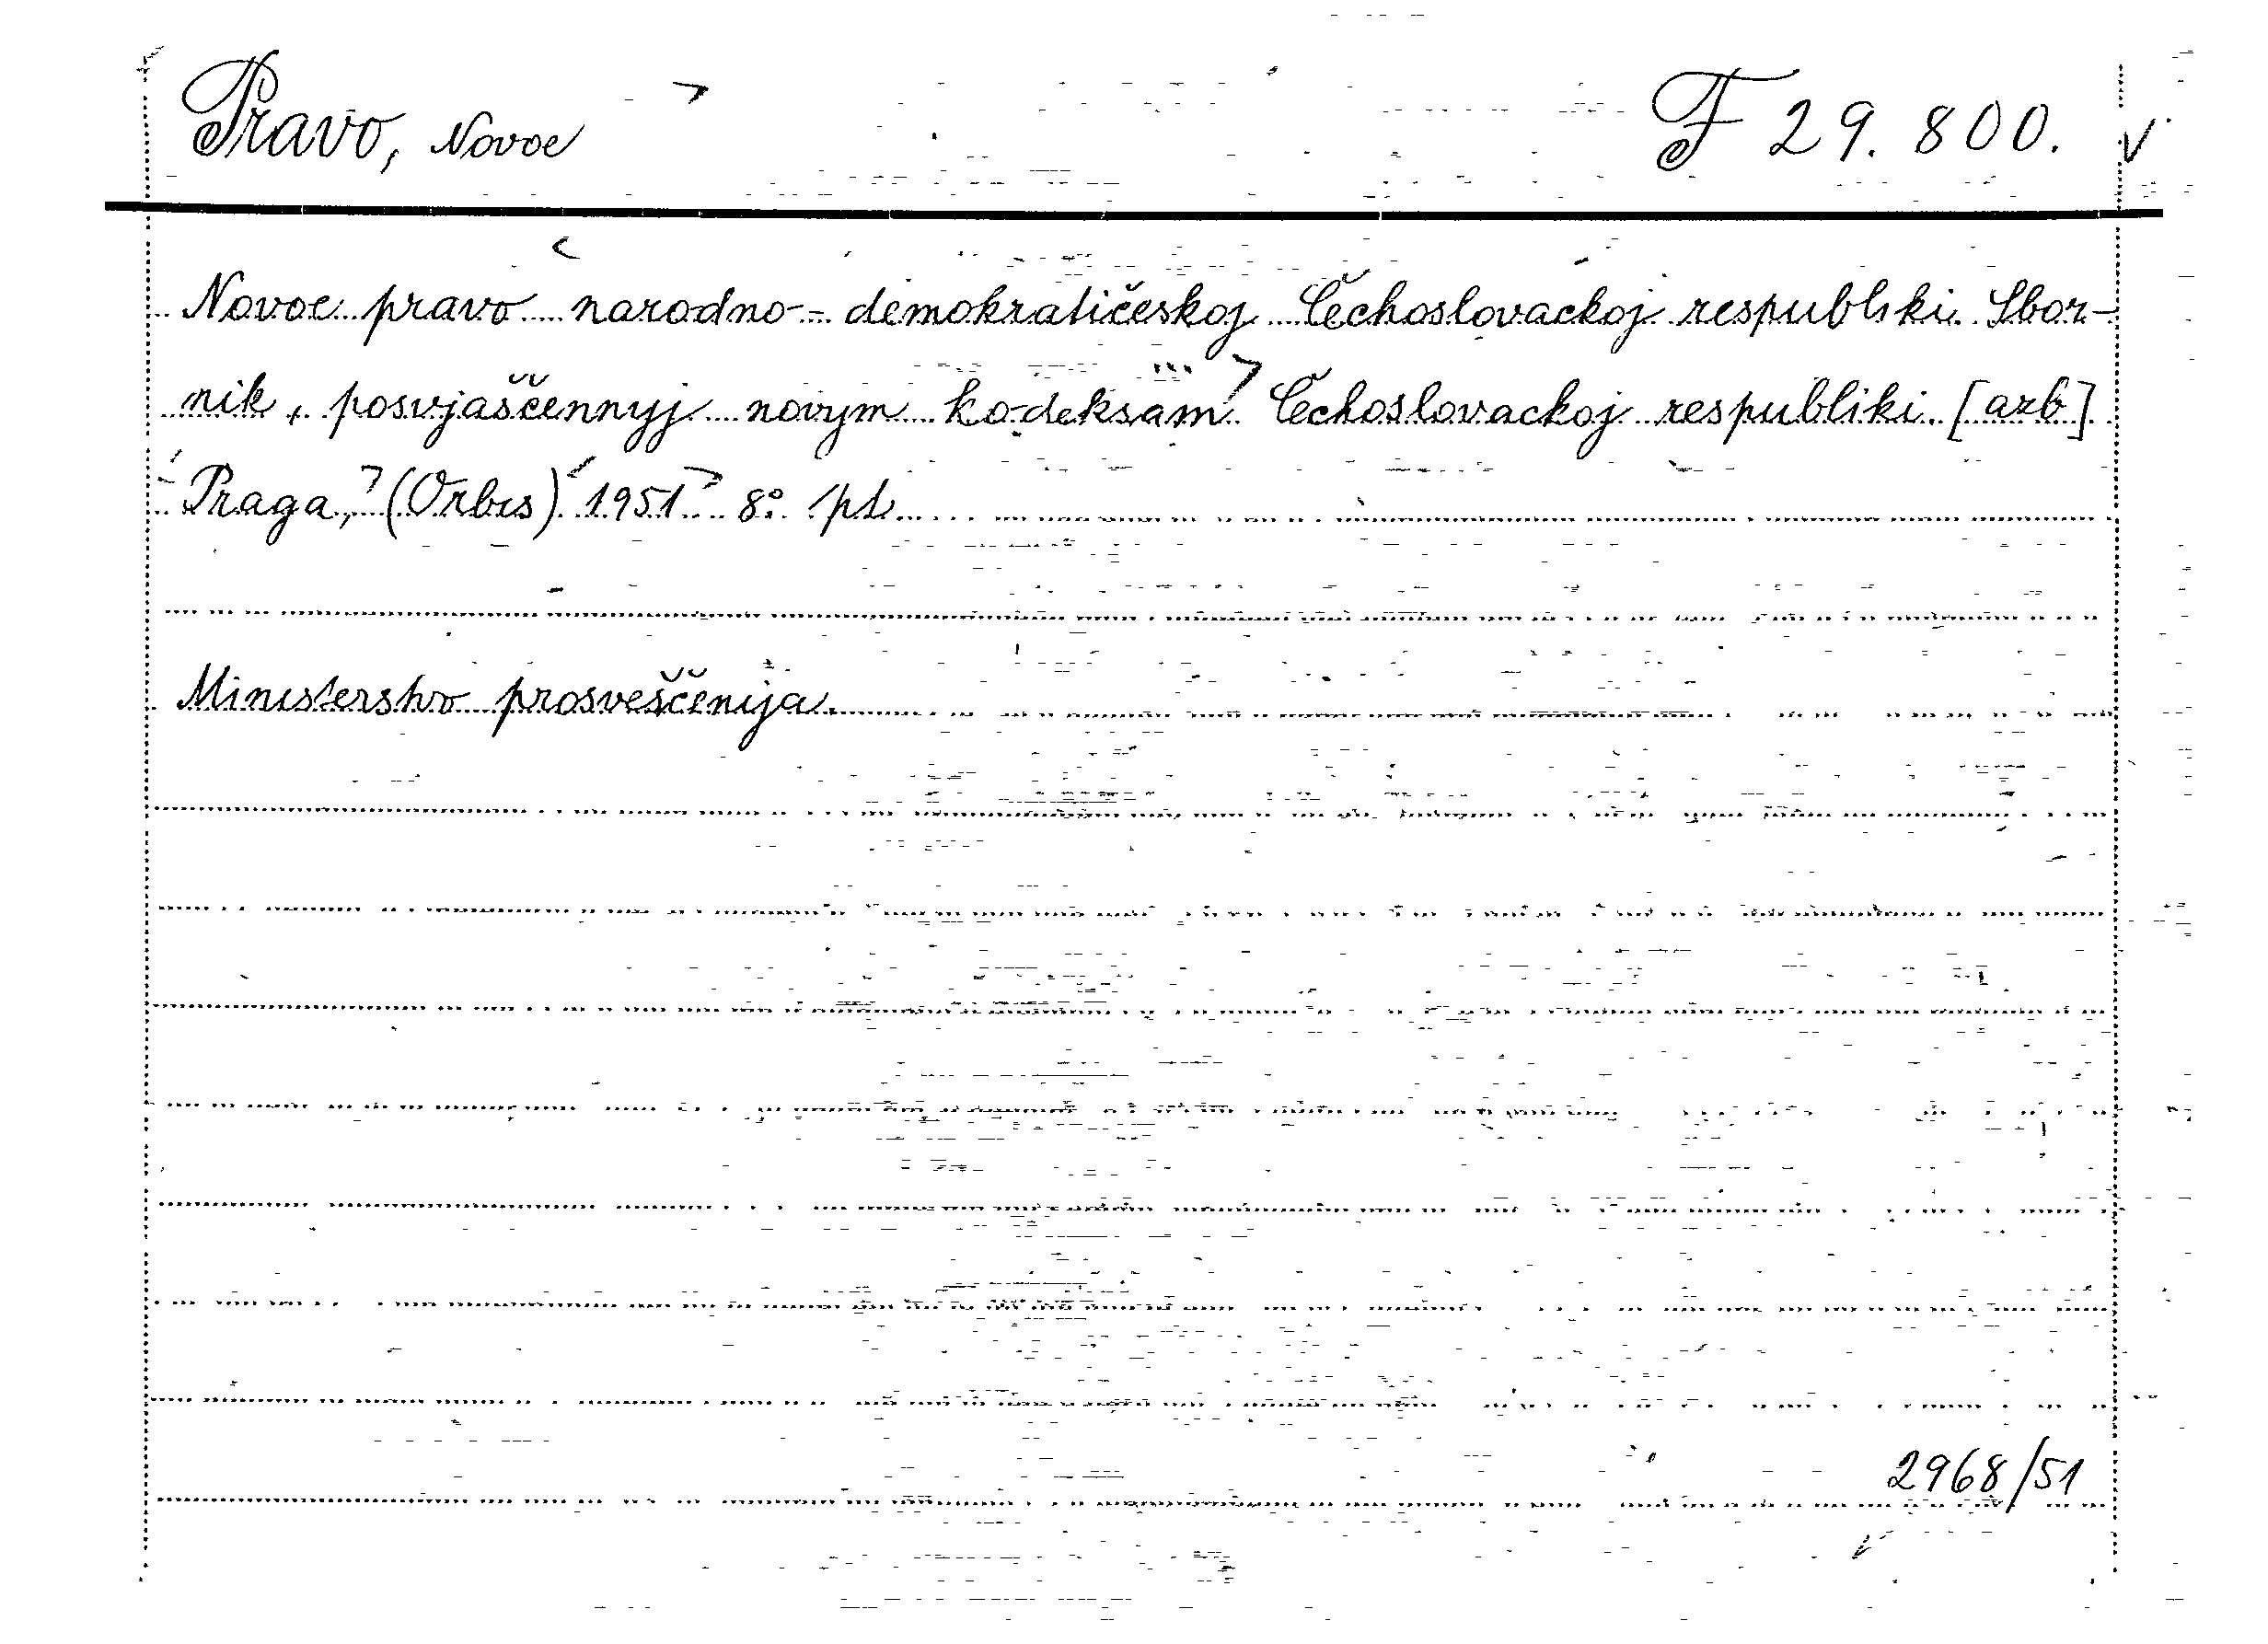 Pravo, Novoe F 29.800.
Novoe pravo narodno-demokratičeskoj Čechoslovackoj respubliki. Sbor-
nik, posvjaščennyj novym kodeksam Čechoslovackoj respubliki. [azb]
Praga, (Orbis) 1951 8°
Ministerstvo prosveščenija.
2968/51